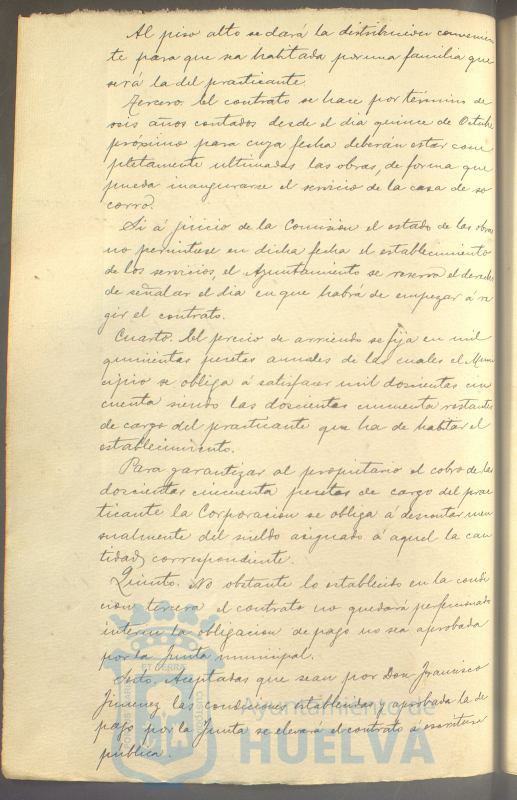 Al piso alto se dará la distribucion convenien
te para que sea habitada por una familia que
será la del practicante.
Tercero. El contrato se hace por término de
seis años contados desde el dia quince de Octubre
próximo para cuya fecha deberan estar com
pletamente ultimadas las obras, de forma que
pueda inaugurarse el servicio de la casa de so
corro.
Si á juicio de la Comision el estado de las obras
no permitiese en dicha fecha el establecimiento
de los servicios, el Ayuntamiento se reserva el derecho
de señalar el dia en que habrá de empezar á re
gir el contrato.
Cuarto. El precio de arriendo se fija en mil
quinientas pesetas anuales de las cuales el Muni
cipio se obliga á satisfacer mil doscientas cin
cuenta siendo las doscientas cincuenta restantes
de cargo del practicante que ha de habitar el
establecimiento.
Para garantizar al propietario el cobro de las
doscientas cincuenta pesetas de cargo del prac
ticante la Corporacion se obliga á descontar men
sualmente del sueldo asignado á aquel la can
tidad correspondiente.
Quinto. No obstante lo establecido en la condi
cion tercera el contrato no quedará perfeccionado
interin la obligacion de pago no sea aprobada
por la Junta municipal.
Sesto. Aceptadas que sean por Don Francisco
Jimenez las condiciones establecidas y aprobada la de
pago por la Junta se elevará el contrato á escritura
pública.
ET TERRA
Ayuntamiento de
HUELVA